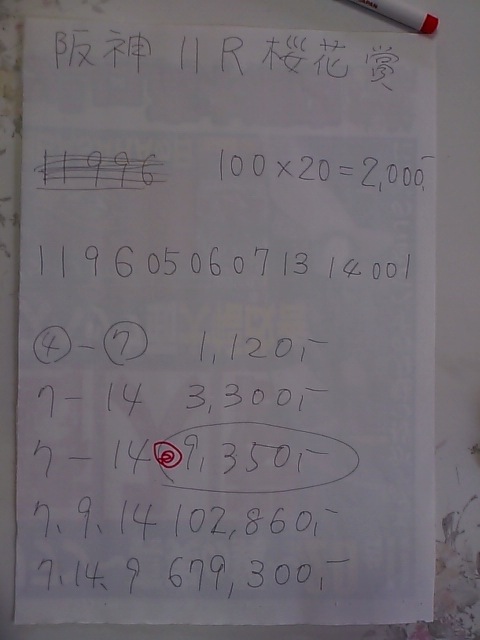 阪神 11R 桜花賞
11996 100×20=2,000,-
1196 05 06 07 13 14 001
④-⑦ 1,120,-
7-14 3,300,-
7-14 9,350,-
7、9、14 102,860,-
7、14、9 679,300,-